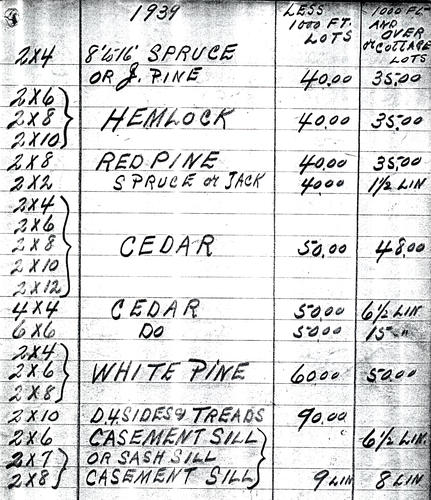 1939 LESS 1000 FT. LOTS 1000 FT AND OVER or COTTAGE LOTS
2X4 8'to16' SPRUCE
OR J. PINE 40.00 35.00
2X6
2X8 HEMLOCK 40.00 35.00
2X10
2X8 RED PINE 40.00 35.00
2X2 SPRUCE or JACK 40.00 1½ LIN
2X4
2X6
2X8 CEDAR 50.00 48.00
2X10
2X12
4X4 CEDAR 50.00 6½ LIN.
6X6 DO 50.00 15 "
2X4
2X6 WHITE PINE 60.00 50.00
2X8
2X10 D.4.SIDES & TREADS 90.00
2X6 CASEMENT SILL 6½ LIN.
2X7 OR SASH SILL
2X8 CASEMENT SILL 9 LIN 8 LIN